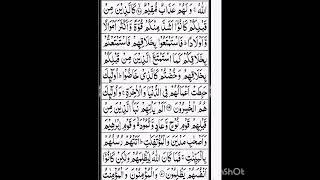 اللّٰهُ ۚ وَلَهُمْ عَذَابٌ مُّقِيْمٌ ۙ كَالَّذِيْنَ مِنْ
قَبْلِكُمْ كَانُوْٓا اَشَدَّ مِنْكُمْ قُوَّةً وَّاَكْثَرَ اَمْوَالًا
وَّاَوْلَادًا ؕ فَاسْتَمْتَعُوْا بِخَلَاقِهِمْ فَاسْتَمْتَعْتُمْ
بِخَلَاقِكُمْ كَمَا اسْتَمْتَعَ الَّذِيْنَ مِنْ قَبْلِكُمْ
بِخَلَاقِهِمْ وَخُضْتُمْ كَالَّذِيْ خَاضُوْا ؕ اُولٰٓئِكَ
حَبِطَتْ اَعْمَالُهُمْ فِي الدُّنْيَا وَالْاٰخِرَةِ ۚ وَاُولٰٓئِكَ
هُمُ الْخٰسِرُوْنَ اَلَمْ يَاْتِهِمْ نَبَاُ الَّذِيْنَ مِنْ
قَبْلِهِمْ قَوْمِ نُوْحٍ وَّعَادٍ وَّثَمُوْدَ ۙ وَقَوْمِ اِبْرٰهِيْمَ
وَاَصْحٰبِ مَدْيَنَ وَالْمُؤْتَفِكٰتِ ؕ اَتَتْهُمْ رُسُلُهُمْ
بِالْبَيِّنٰتِ ۚ فَمَا كَانَ اللّٰهُ لِيَظْلِمَهُمْ وَلٰكِنْ كَانُوْٓا
اَنْفُسَهُمْ يَظْلِمُوْنَ وَالْمُؤْمِنُوْنَ وَالْمُؤْمِنٰتُ